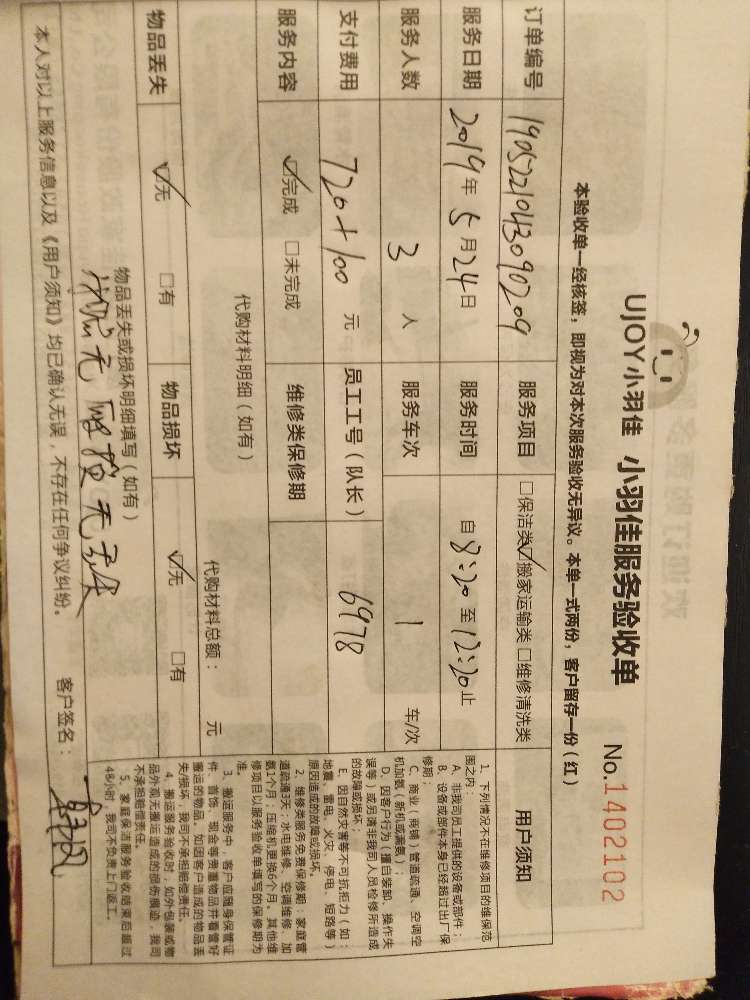 UJOY小羽佳 小羽佳服务验收单 No.1402102
本验收单一经核签，即视为对本次服务验收无异议。本单一式两份，客户留存一份（红）
订单编号 190522104309 0209 服务项目 □保洁类 ☑搬家运输类 □维修清洗类
服务日期 2019年5月24日 服务时间 自8:20至12:20止
服务人数 3 人 服务车次 1 车/次
支付费用 720+100 元 员工工号（队长） 6978
服务内容 ☑完成 □未完成 维修类保修期
代购材料明细（如有）
代购材料总额： 元
物品丢失 ☑无 □有 物品损坏 ☑无 □有
物品丢失或损坏明细填写（如有）
无 损 无丢失
本人对以上服务信息以及《用户须知》均已确认无误，不存在任何争议纠纷。 客户签名：
用户须知
1、下列情况不在维修项目的维保范
围之内：
A、非我司员工提供的设备或部件；
B、设备或部件本身已经超过出厂保
修期；
C、商业（商铺）管道疏通、空调空
机加氨（新机或漏氨）；
D、因客户行为（擅自装卸、操作失
误等）或另请非我司人员检修所造成
的故障或损坏；
E、因自然灾害等不可抗拒力（如：
地震、雷电、火灾、停电、短路等）
原因造成的故障或损坏。
2、维修类服务免费保修期：家庭管
道疏通3天；水电维修、空调维修、加
氨1个月；压缩机更换6个月。其他维
修项目以服务验收单填写的保修期为
准。
3、搬运服务中，客户应随身保管证
件、首饰、现金等贵重物品并看管好
搬运的物品，如因客户造成的物品丢
失/损坏，我司不承担赔偿责任。
4、搬运服务验收时，如外包装或物
品外观无搬运造成的损伤痕迹，我司
不承担赔偿责任。
5、家庭保洁服务验收结束后超过
48小时，我司不负责上门返工。